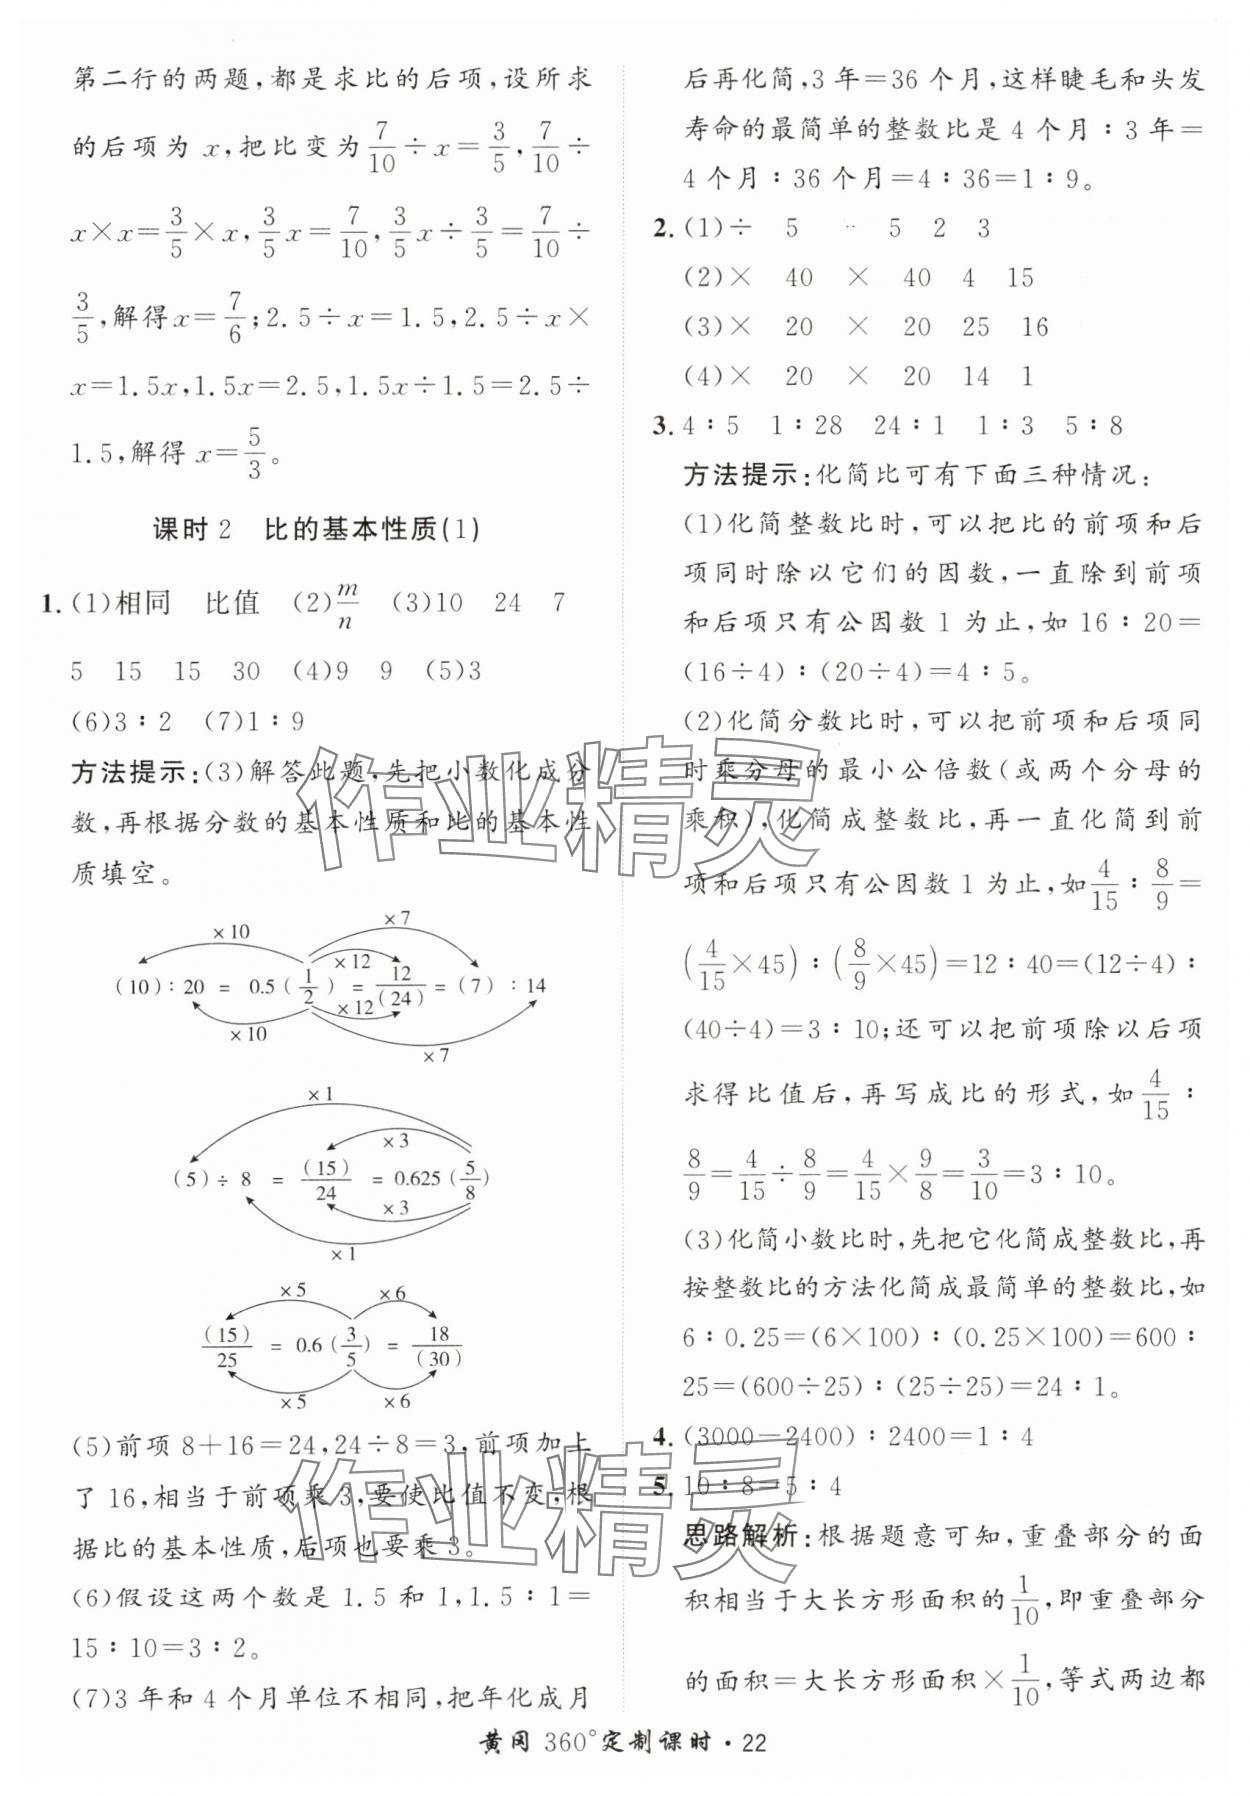 第二行的两题,都是求比的后项,设所求
的后项为 x,把比变为7/10÷x=3/5,7/10÷
x×x=3/5×x,3/5x=7/10,3/5x÷3/5=7/10÷
3/5,解得x=7/6;2.5÷x=1.5,2.5÷x×
x=1.5x,1.5x=2.5,1.5x÷1.5=2.5÷
1.5,解得 x=5/3。
课时2 比的基本性质(1)
1.(1)相同 比值 (2)m/n (3)10 24 7
5 15 15 30 (4)9 9 (5)3
(6)3∶2 (7)1∶9
方法提示:(3)解答此题,先把小数化成分
数,再根据分数的基本性质和比的基本性
质填空。
×7
×10
×12
(10)∶20 = 0.5(1/2) = 12/(24) = (7)∶14
×12
×10
×7
×1
×3
(5)÷8 = (15)/24 = 0.625(5/8)
×3
×1
×5 ×6
(15)/25 = 0.6(3/5) = 18/(30)
×5 ×6
(5)前项 8+16=24,24÷8=3,前项加上
了 16,相当于前项乘 3,要使比值不变,根
据比的基本性质,后项也要乘 3。
(6)假设这两个数是 1.5 和 1,1.5∶1=
15∶10=3∶2。
(7)3 年和 4 个月单位不相同,把年化成月
后再化简,3 年=36 个月,这样睫毛和头发
寿命的最简单的整数比是 4 个月∶3 年=
4 个月∶36 个月=4∶36=1∶9。
2.(1)÷ 5 5 2 3
(2)× 40 × 40 4 15
(3)× 20 × 20 25 16
(4)× 20 × 20 14 1
3. 4∶5 1∶28 24∶1 1∶3 5∶8
方法提示:化简比可有下面三种情况:
(1)化简整数比时,可以把比的前项和后
项同时除以它们的因数,一直除到前项
和后项只有公因数 1 为止,如 16∶20=
(16÷4)∶(20÷4)=4∶5。
(2)化简分数比时,可以把前项和后项同
时乘分母的最小公倍数(或两个分母的
乘积),化简成整数比,再一直化简到前
项和后项只有公因数 1 为止,如4/15∶8/9=
(4/15×45)∶(8/9×45)=12∶40=(12÷4)∶
(40÷4)=3∶10;还可以把前项除以后项
求得比值后,再写成比的形式,如4/15∶
8/9=4/15÷8/9=4/15×9/8=3/10=3∶10。
(3)化简小数比时,先把它化简成整数比,再
按整数比的方法化简成最简单的整数比,如
6∶0.25=(6×100)∶(0.25×100)=600∶
25=(600÷25)∶(25÷25)=24∶1。
4.(3000-2400)∶2400=1∶4
5. 10∶8=5∶4
思路解析:根据题意可知,重叠部分的面
积相当于大长方形面积的1/10,即重叠部分
的面积=大长方形面积×1/10,等式两边都
作业精灵
作业精灵
黄冈 360°定制课时·22